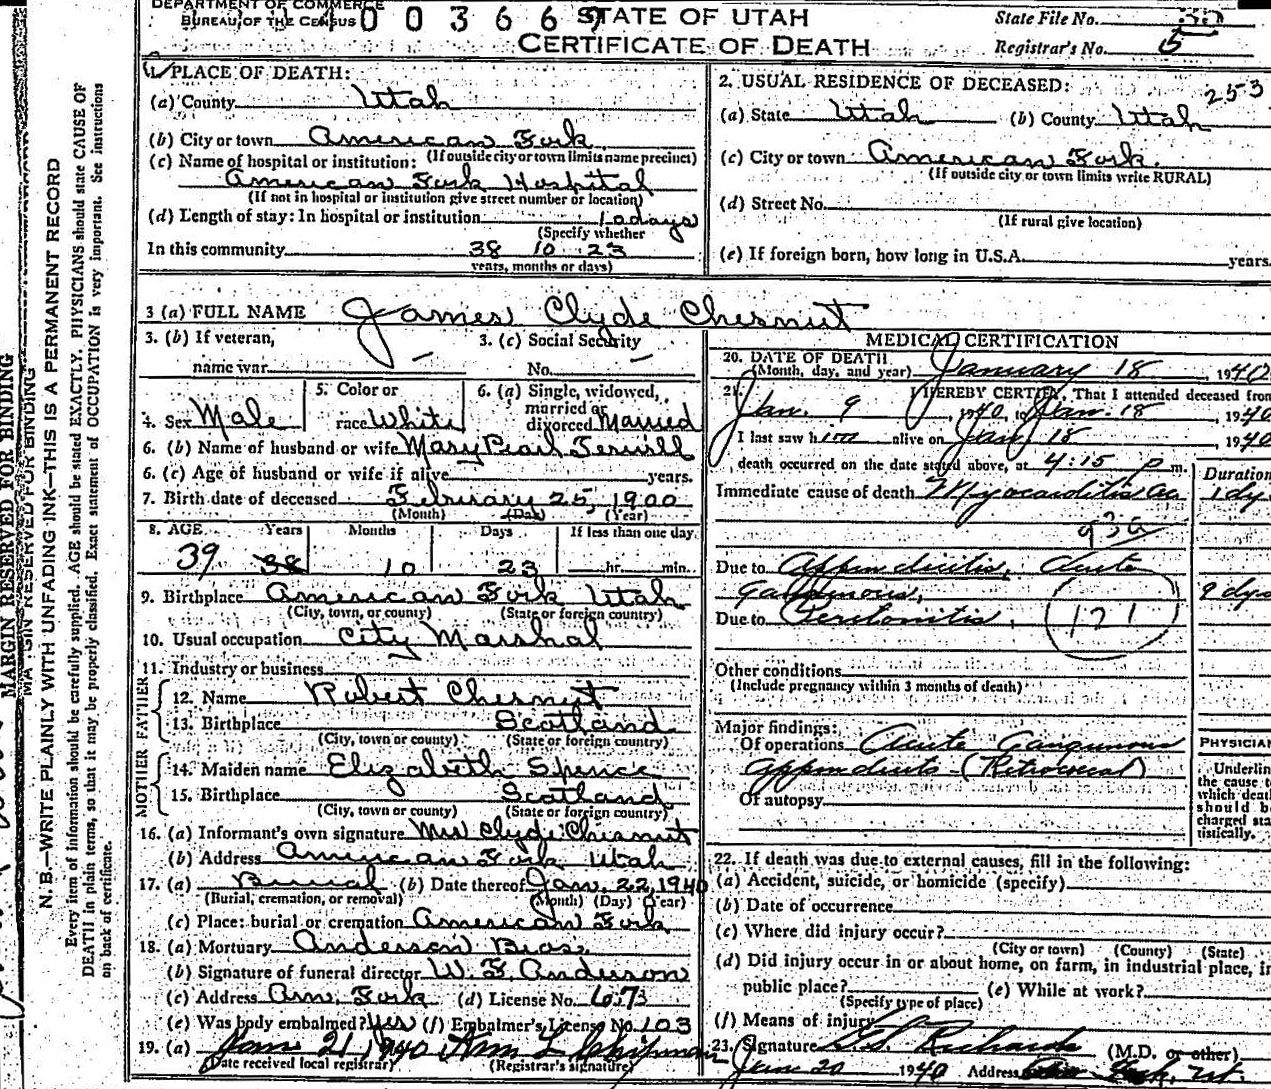 DEPARTMENT OF COMMERCE
BUREAU OF THE CENSUS
0 0 3 6 6
STATE OF UTAH
CERTIFICATE OF DEATH
State File No.
Registrar's No. 5
1. PLACE OF DEATH:
(a) County Utah
(b) City or town American Fork
(If outside city or town limits name precinct)
(c) Name of hospital or institution:
American Fork Hospital
(If not in hospital or institution give street number or location)
(d) Length of stay: In hospital or institution 10 days
(Specify whether
In this community 38 10 23
years, months or days)
2. USUAL RESIDENCE OF DECEASED:
253
(a) State Utah (b) County Utah
(c) City or town American Fork.
(If outside city or town limits write RURAL)
(d) Street No.
(If rural give location)
(e) If foreign born, how long in U.S.A. years.
3 (a) FULL NAME James Clyde Chesnut
3. (b) If veteran,
name war –
3. (c) Social Security
No. –
4. Sex Male
5. Color or
race White
6. (a) Single, widowed,
married or
divorced Married
6. (b) Name of husband or wife Mary Pearl Terwill
6. (c) Age of husband or wife if alive years.
7. Birth date of deceased February 25, 1900
(Month) (Day) (Year)
8. AGE Years Months Days If less than one day
39 38 10 23 hr. min.
9. Birthplace American Fork Utah
(City, town, or county) (State or foreign country)
10. Usual occupation City Marshal
11. Industry or business
FATHER
12. Name Robert Chesnut
13. Birthplace Scotland
(City, town or county) (State or foreign country)
MOTHER
14. Maiden name Elizabeth Spence
15. Birthplace Scotland
(City, town or county) (State or foreign country)
16. (a) Informant's own signature Mrs Clyde Chesnut
(b) Address American Fork Utah
17. (a) Burial (b) Date thereof Jan. 22, 1940
(Burial, cremation, or removal) (Month) (Day) (Year)
(c) Place: burial or cremation American Fork
18. (a) Mortuary Anderson Bros.
(b) Signature of funeral director W. F. Anderson
(c) Address Am. Fork (d) License No. 673
(e) Was body embalmed? Yes (f) Embalmer's License No. 103
19. (a) Jan 21 1940
(Date received local registrar) (Registrar's signature)
MEDICAL CERTIFICATION
20. DATE OF DEATH
(Month, day, and year) January 18, 1940
21. I HEREBY CERTIFY, That I attended deceased from
Jan. 9, 1940, to Jan. 18, 1940
I last saw him alive on Jan 18, 1940
death occurred on the date stated above, at 4:15 p m.
Duration
Immediate cause of death Myocarditis ac 1 dy
93a
Due to Appendicitis, Acute
Gangrenous, 9 dys
Due to Peretonitis,
121
Other conditions
(Include pregnancy within 3 months of death)
Major findings:
Of operations Acute Gangrenous
appendicitis (Retrocecal)
Of autopsy
PHYSICIAN
Underline
the cause to
which death
should be
charged sta
tistically.
22. If death was due to external causes, fill in the following:
(a) Accident, suicide, or homicide (specify)
(b) Date of occurrence
(c) Where did injury occur?
(City or town) (County) (State)
(d) Did injury occur in or about home, on farm, in industrial place, in
public place? (e) While at work?
(Specify type of place)
(f) Means of injury
23. Signature Richards (M.D. or other)
Jan 20 1940 Address Fork, Ut.
MARGIN RESERVED FOR BINDING
N. B.—WRITE PLAINLY WITH UNFADING INK—THIS IS A PERMANENT RECORD
Every item of information should be carefully supplied. AGE should be stated EXACTLY. PHYSICIANS should state CAUSE OF
DEATH in plain terms, so that it may be properly classified. Exact statement of OCCUPATION is very important. See instructions
on back of certificate.